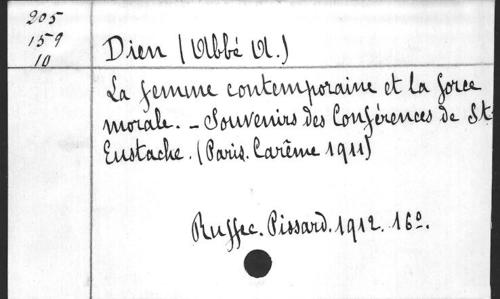 205
159
10
Dien (Abbé A.)
La femme contemporaine et la force
morale. - Souvenirs des Conférences de St-
Eustache. (Paris. Carême 1911)
Ruffec. Pissard. 1912. 16º.